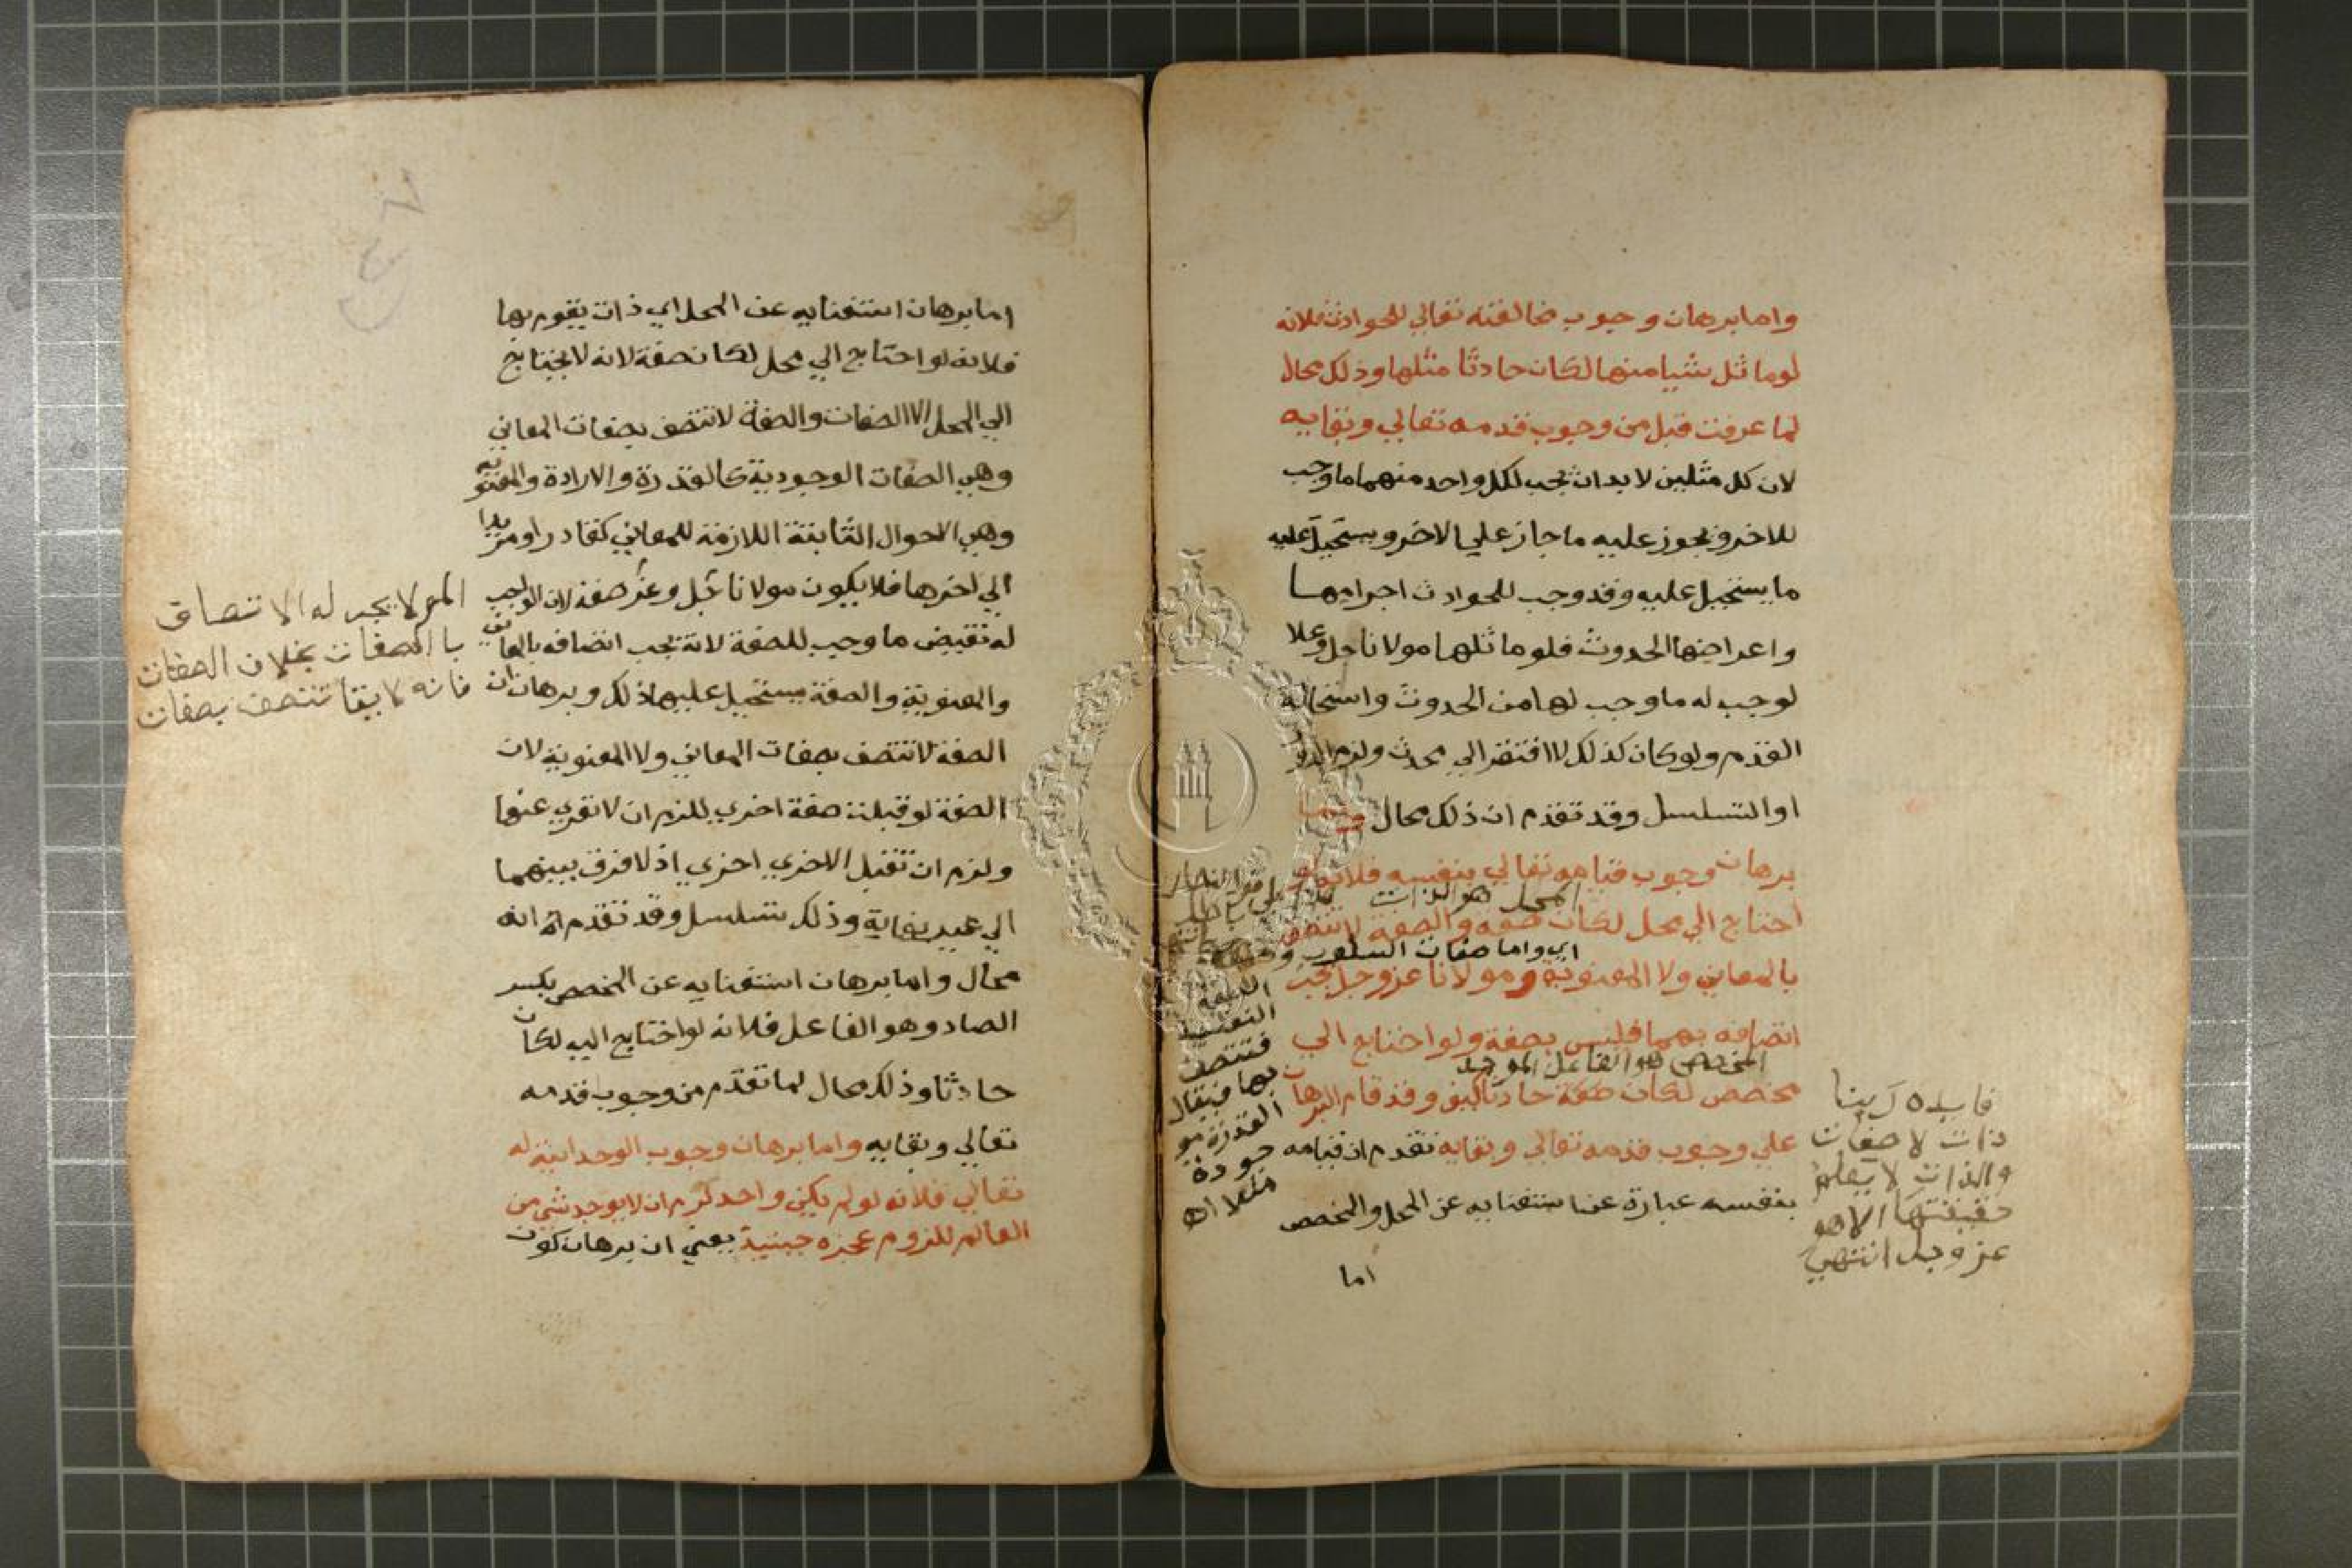 واما برهان وجوب مخالفته تعالي للحوادث فلانه
لوماثل شيا منها لكان حادثا مثلها وذلك محال
لما عرفت قبل من وجوب قدمه تعالي وبقايه
لان كل مثلين لا بد ان يجب لكل واحد منهما ما وجب
للاخر ويجوز عليه ما جاز علي الاخر ويستحيل عليه
ما يستحيل عليه وقد وجب للحوادث اجرامها
واعراضها الحدوث فلو ماثلها مولانا جل وعلا
لوجب له ما وجب لها من الحدوث واستحالة
القدم ولو كان كذلك لافتقر الي محدث ولزم الدور
او التسلسل وقد تقدم ان ذلك محال واما
برهان وجوب قيامه تعالي بنفسه فلانه لو
المحل هو الذات
احتاج الي محل لكان صفة والصفة لا تتصف
اي واما صفات السلوب
بالمعاني ولا المعنوية ومولانا عز وجل يجب
اتصافه بهما فليس بصفة ولو احتاج الي
المخصص هو الفاعل الموجد
مخصص لكان حادثا كيف وقد قام البرهان
علي وجوب قدمه تعالي وبقايه تقدم ان قيامه
بنفسه عبارة عن استغنايه عن المحل والمخصص
اما
النفسية
فتتصف
بها فيقال
القدرة مو
جودة
فايده ربنا
ذات لا صفات
والذات لا يعلم
حقيقتها الا هو
عز وجل انتهي
اما برهان استغنايه عن المحل اي ذات يقوم بها
فلانه لو احتاج الي محل لكان صفة لانه لا يحتاج
الي المحل الا الصفات والصفة لا تتصف بصفات المعاني
وهي الصفات الوجودية كالقدرة والارادة والمعنوية
وهي الاحوال الثابتة اللازمة للمعاني كقادر او مريدا
الي اخرها فلا يكون مولانا جل وعز صفة لان الواجب
له نقيض ما وجب للصفة لانه يجب اتصافه بالمعاني
والمعنوية والصفة يستحيل عليها ذلك وبرهان ان
الصفة لا تتصف بصفات المعاني ولا المعنوية لان
الصفة لو قبلت صفة اخري للزم ان لا تعري عنها
ولزم ان تقبل الاخري اخري اذ لا فرق بينهما
الي غير نهاية وذلك تسلسل وقد تقدم انه
محال واما برهان استغنايه عن المخصص بكسر
الصاد وهو الفاعل فلانه لو احتاج اليه لكان
حادثا وذلك محال لما تقدم من وجوب قدمه
تعالي وبقايه واما برهان وجوب الوحدانية له
تعالي فلانه لو لم يكن واحد لزم ان لا يوجد شي من
العالم للزوم عجزه حينيذ يعني ان برهان كون
لا يجب له الاتصاف
بالصفات بخلاف الصفات
فانه لا يقا تتصف بصفات